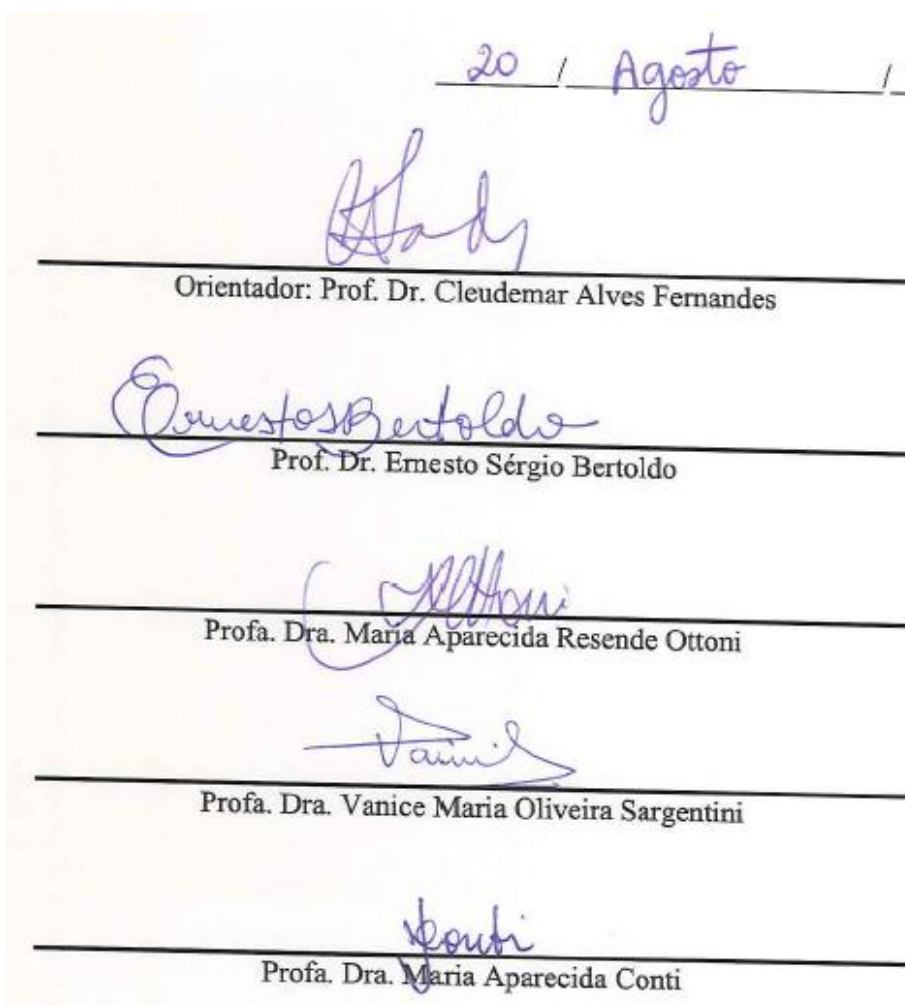 20 / Agosto /
Orientador: Prof. Dr. Cleudemar Alves Fernandes
ErnestoSBertoldo
Prof. Dr. Ernesto Sérgio Bertoldo
Profa. Dra. Maria Aparecida Resende Ottoni
Profa. Dra. Vanice Maria Oliveira Sargentini
Conti
Profa. Dra. Maria Aparecida Conti